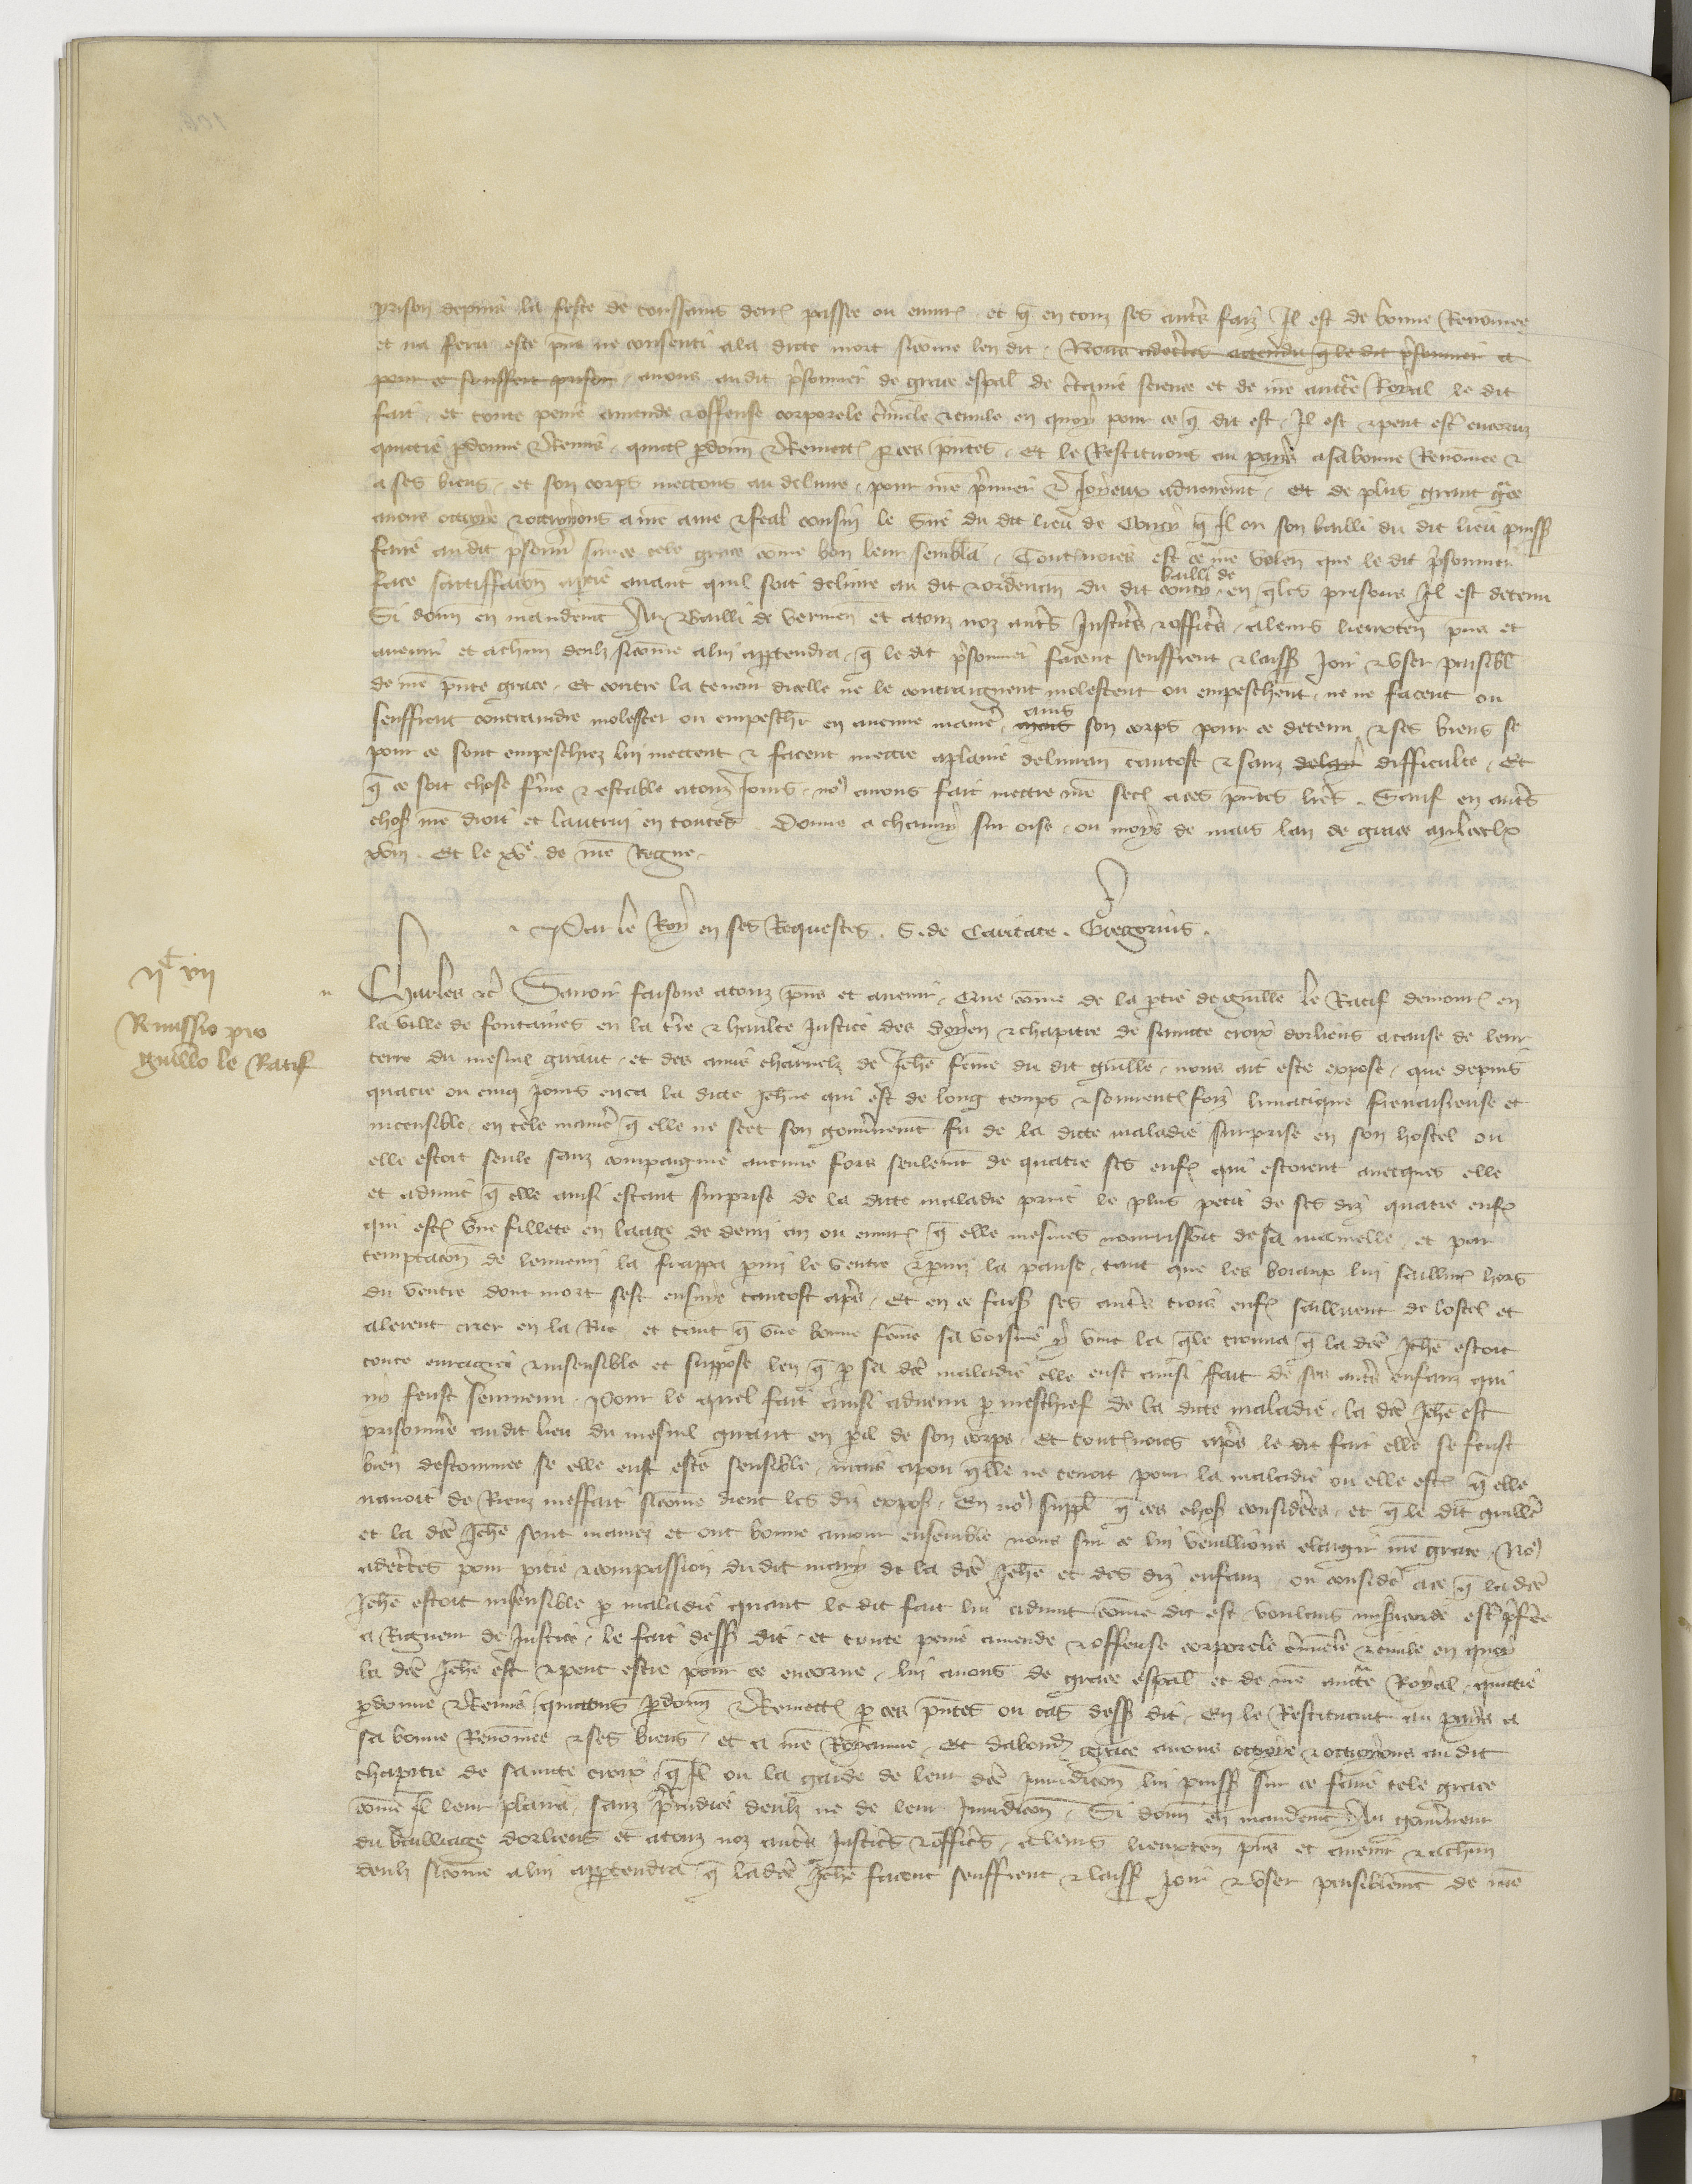 prison depuis la feste de toussains derr passee ou envir et q en touz ses autrs faiz Il est de bonne Renomee
et na feru este pns ne consenti ala dicte mort sicome len dit. Nous adcertes attendu q le dit prisonnier a
pour ce souffert prison avons audit prisonnier de grace espal de ctaine science et de nre auctte Royal le dit
fait et toute peine amende & offense corporele cminele & civile en quoy pour ce q dit est Il est & peut estr encoruz
quictie pdonne & Remis quictt pdonn & Remectt p ces pntes. Et le Restituons au pays a sa bonne Renomee &
a ses biens et son corps mettons au delivre pour nre pmier & Joyeux advenemt. Et de plus grant gce
avons octroye & octroyons a nre ame & feal cousin le Sire du dit lieu de Coucy q Il ou son bailli du dit lieu puiss
faire audit prisonnr sur ce tele grace come bon leur semblra. Toutesvoies est ce nre volen que le dit prisonnier
face satiffacon a ptie avant quil soit delivre au dit & ordenan du dit bailli de coucy en qles prisons Il est detenu
Si donn en mandemt Au Bailli de vermen et atouz noz autrs Justicrs & officrs aleurs lieuxten pns et
avenir et achun deulz sicome alui apptendra q le dit prisonnier facent seuffrent & laiss Joir & user paisibl
de nre pnte grace. Et contre la teneur dicelle ne le contraignent molestent ou empeschent ne ne facent ou
seuffrent contraindre molester ou empeschr en aucune manie mais ains son corps pour ce detenu & ses biens se
pour ce sont empeschiez lui mettent & facent mettre a plaine delivran tantost & sanz delay difficulte. Et
q ce soit chose ferme & estable atouz Jours no9 avons fait mettre nre seel a ces pntes lres. Sauf en autrs
chos nre droit et lautrui en toutes. Donne a chauny sur oise ou moys de mars lan de grace mil ccc lx
xviii. Et le xve de nre Regne.
Par le Roy en ses Requestes. S. de Caritate. Gregorius.
iic vii
Remissio pro
guillo le Ratif
Charles &c Savoir faisons atouz pns et avenir. Que come de la ptie de guille le Ratif demour en
la ville de fontaines en la tre & haulte Justice des doyen & chapitre de saincte croix dorliens a cause de leur
terre du mesnil giraut et des amis charnelz de Jehe feme du dit guille nous ait este expose que depuis
quatre ou cinq Jours enca la dicte Jehne qui est de long temps & souvent foiz lunatique frenaisieuse et
incensible en tele manie q elle ne scet son gouvnemt fu de la dicte maladie surprise en son hostel ou
elle estoit seule sanz compaignie aucune fors seulemt de quatre ses enf qui estoient avecques elle
et advint q elle ainsi estant surprise de la dicte maladie print le plus petit de ses diz quatre enf
qui est une fillete en laage de demi an ou envir q elle mesmes nourrissoit de sa mamelle et par
temptacon de lennemi la frappa parmi le ventre & parmi la panse tant que les boiaux lui saillir hors
du ventre dont mort sest ensuie tantost aprs. Et en ce fais ses autrs trois enf saillirent de lostel et
alerent crier en la Rue et tant q une bonne feme sa voisine y vint la qle trouva q la dce Jehe estoit
toute enragiee & insensible et suppose len q p sa dce maladie elle eust ainsi fait de ses autrs enfanz qui
ny feust seurvenu. Pour le quel fait ainsi advenu p meschief de la dicte maladie la dce Jehe est
prisonnie audit lieu du mesnil giraut en pil de son corps. Et toutesvoies aprs le dit fait elle se feust
bien destournee se elle eust este sensible mais apou qlle ne tenoit pour la maladie ou elle est q elle
navoit de Riens meffait sicome dient les diz expos. En no9 suppl q ces chos considees et q le dit guille
et la dce Jehe sont mariez et ont bonne amour ensemble nous sur ce lui veuillions elargir nre grace. No9
adcertes pour pitie & compassion dudit mary de la dce Jehe et des diz enfanz ou conside a ce q la dce
Jehe estoit insensible p maladie quant le dit fait lui advint come dit est voulans misicorde estr pfee
a Rigueur de Justice le fait dess dit et toute peine amende & offense corporele cminele & civile en quoy
la dce Jehe est & peut estre pour ce encorue lui avons de grace espal et de nre auctte Royal quictie
pdonne & Remis quictons pdonn & Remectt p ces pntes ou cas dess dit. En le Restituant au pais a
sa bonne Renomee & ses biens et a nre Royaume. Et dabond grace avons octroye & octroyons audit
chapitre de saincte croix q Il ou la garde de leur dce Juridicon lui puiss sur ce faire tele grace
come Il leur plaira sanz prejudice deulz ne de leur Juridicon. Si donn en mandemt Au gouvneur
du bailliage dorliens et atouz noz autrs Justicrs & officrs aleurs lieuxten pns et avenir & achun
deulz sicome alui apptendra q ladce Jehe facent seuffrent & laiss Joir & user paisiblemt de nre